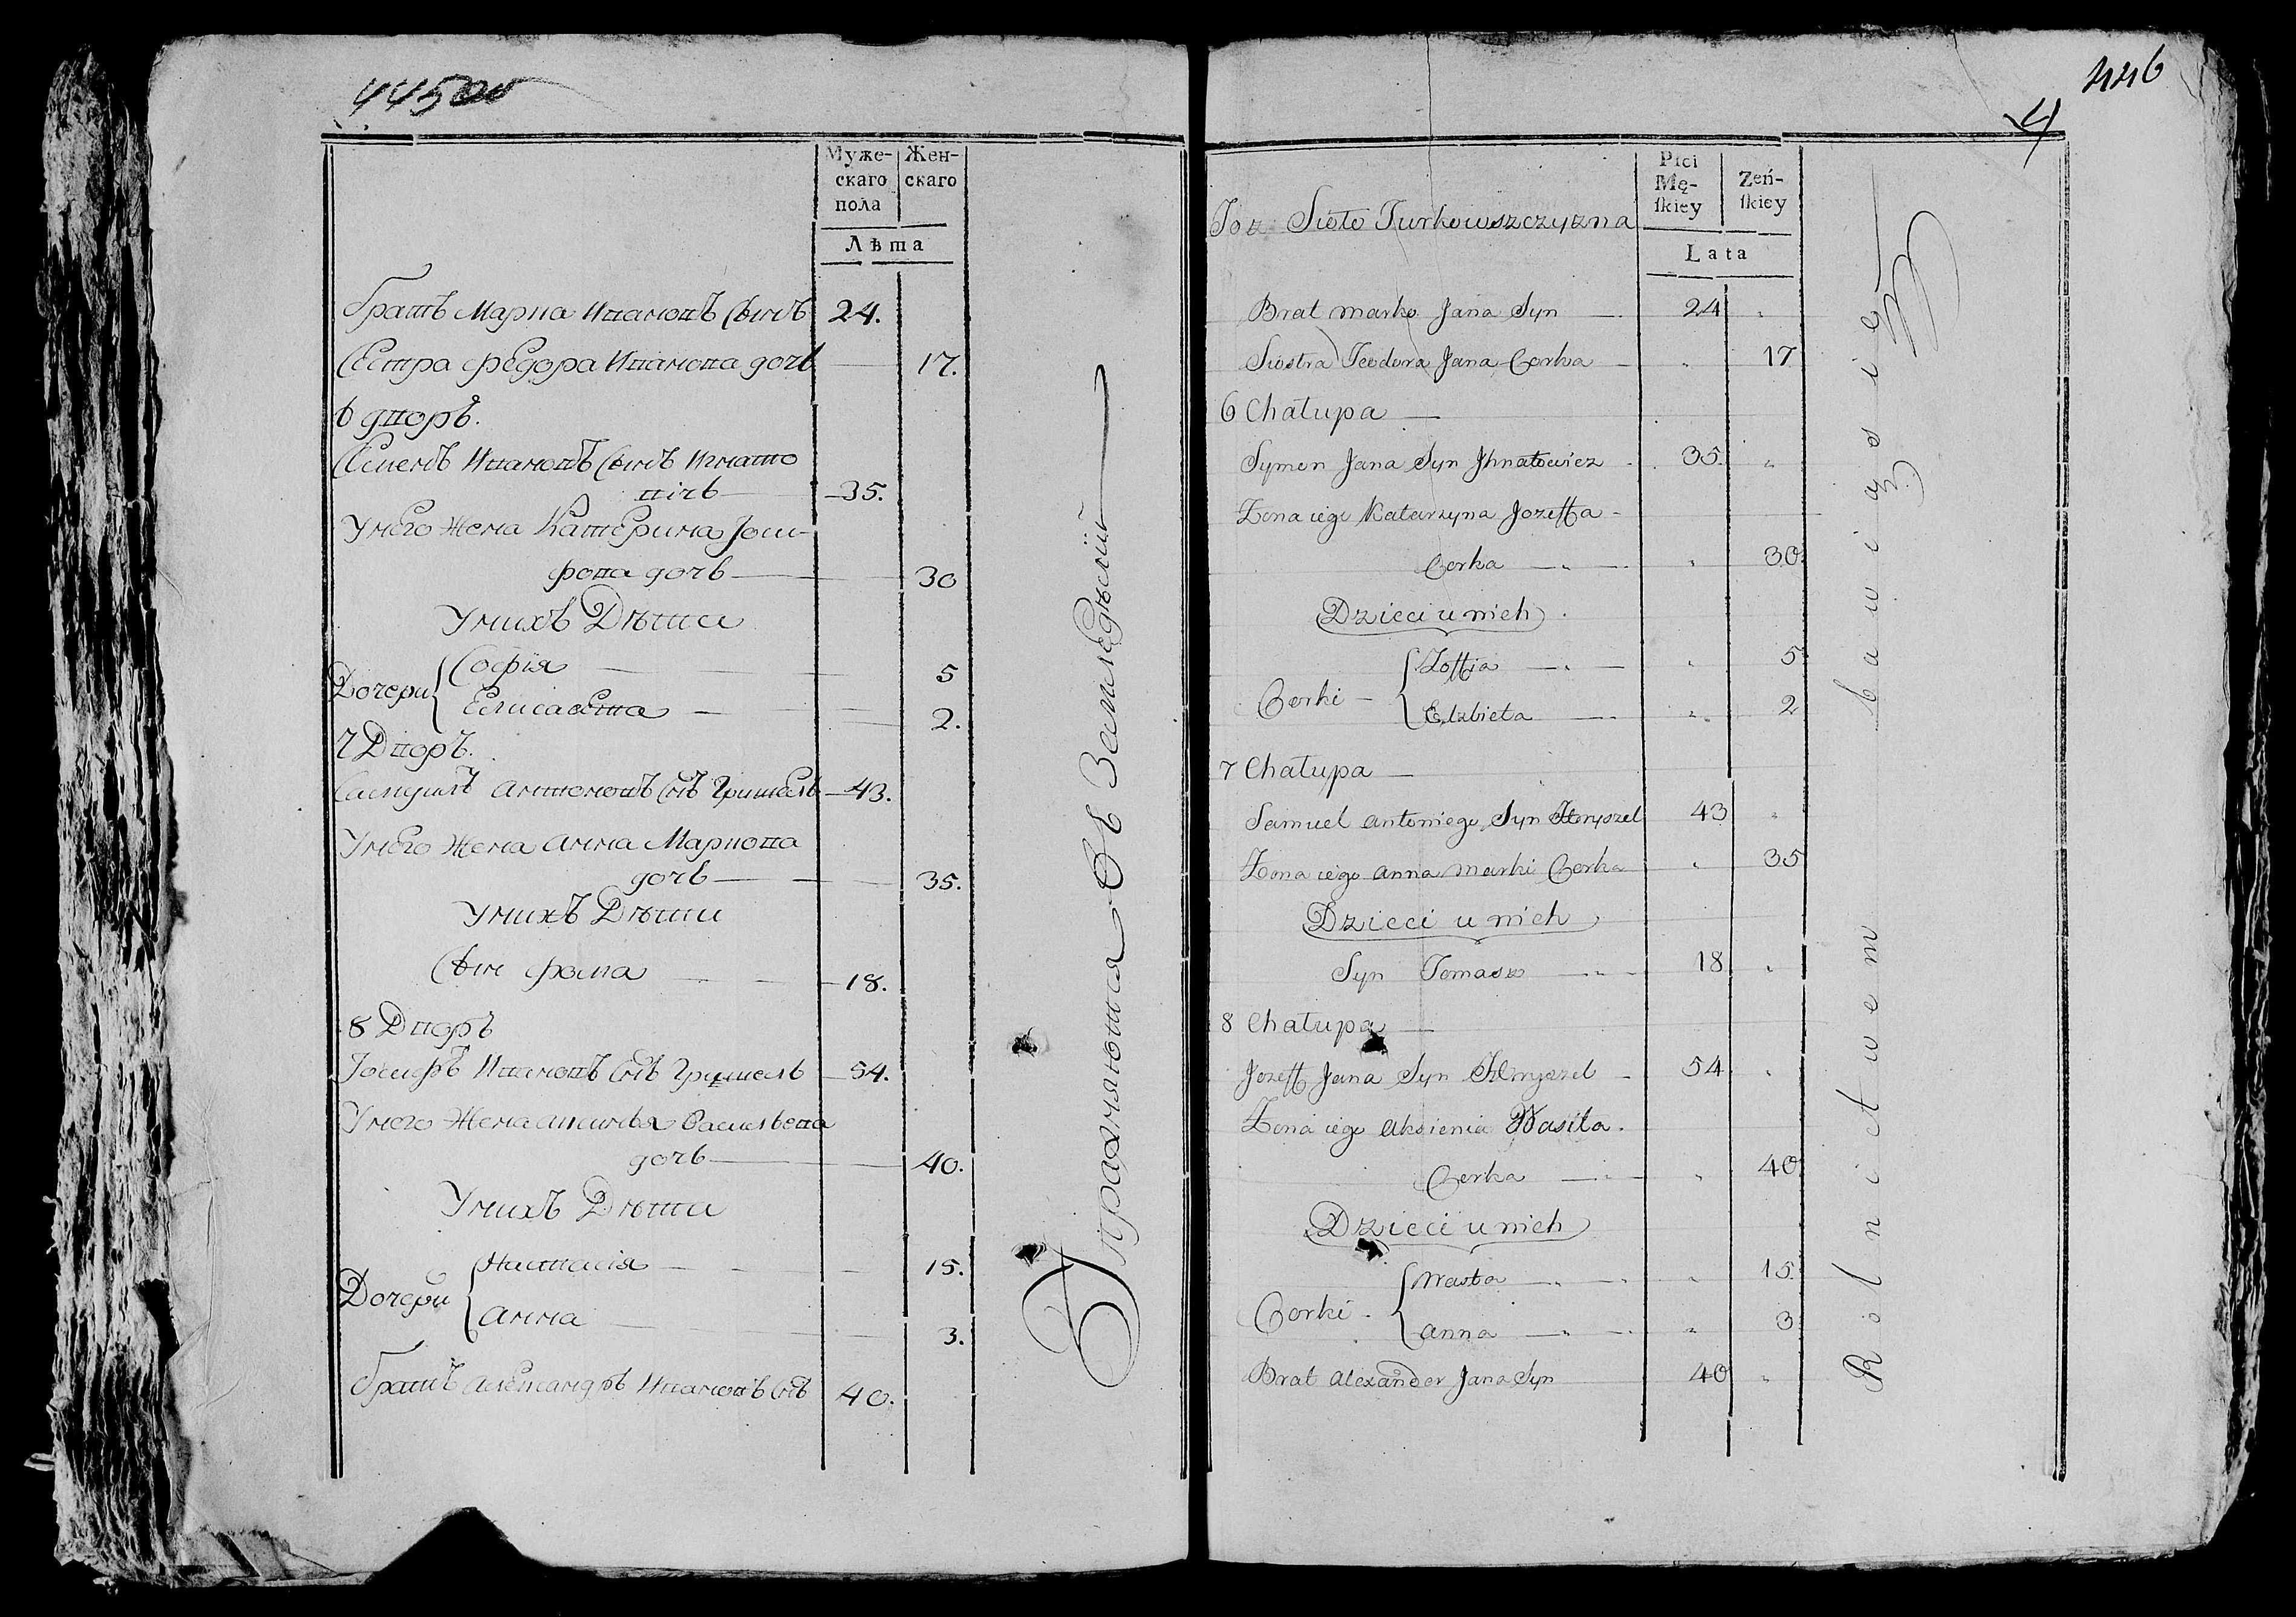 445 об
Муже-
скаго
пола
Жен-
скаго
Лѣта
братъ Марка Ивановъ Сынъ 24.
Сестра Федора Иванова дочь 17.
6 дворъ.
Семенъ Ивановъ Сынъ Игнато
вичь 35.
У него Жена Катерина Іоси-
фова дочь 30
У нихъ Дѣти
Дочери { Софія 5
Елисавета 2.
7 Дворъ.
Самуилъ Антоновъ Снъ Гришель 43.
У него Жена Анна Маркова
дочь 35.
У нихъ Дѣти
Сын Фома 18.
8 Дворъ
Іосифъ Ивановъ Снъ Гришель 54.
У него Жена Аксинья Васильева
дочь 40.
У нихъ Дѣти
Дочери { Настасія 15.
Анна 3.
братъ Александръ Ивановъ Снъ 40.
Упражняются въ Земледѣлiи
446
4
Toż Sioło Turkowszczyzna
Płci
Mę-
skiey
Żeń-
skiey
Lata
Brat Marko Jana Syn 24 "
Siostra Teodora Jana Corka " 17
6 Chałupa
Symon Jana Syn Jhnatowicz 35. "
Żona iego Katarzyna Jozeffa
Corka " 30.
Dzieci u nich
Corki { Zoffja " 5
Elzbieta " 2
7 Chałupa
Samuel Antoniego Syn Hryszel 43 "
Żona iego Anna Marki Corka " 35
Dzieci u nich
Syn Tomasz 18 "
8 Chałupa
Jozeff Jana Syn Hryszel 54 "
Żona iego Aksienia Wasila
Corka " 40
Dzieci u nich
Corki { Nasta " 15
Anna " 3
Brat Alexander Jana Syn 40 "
Rolnictwem bawią się